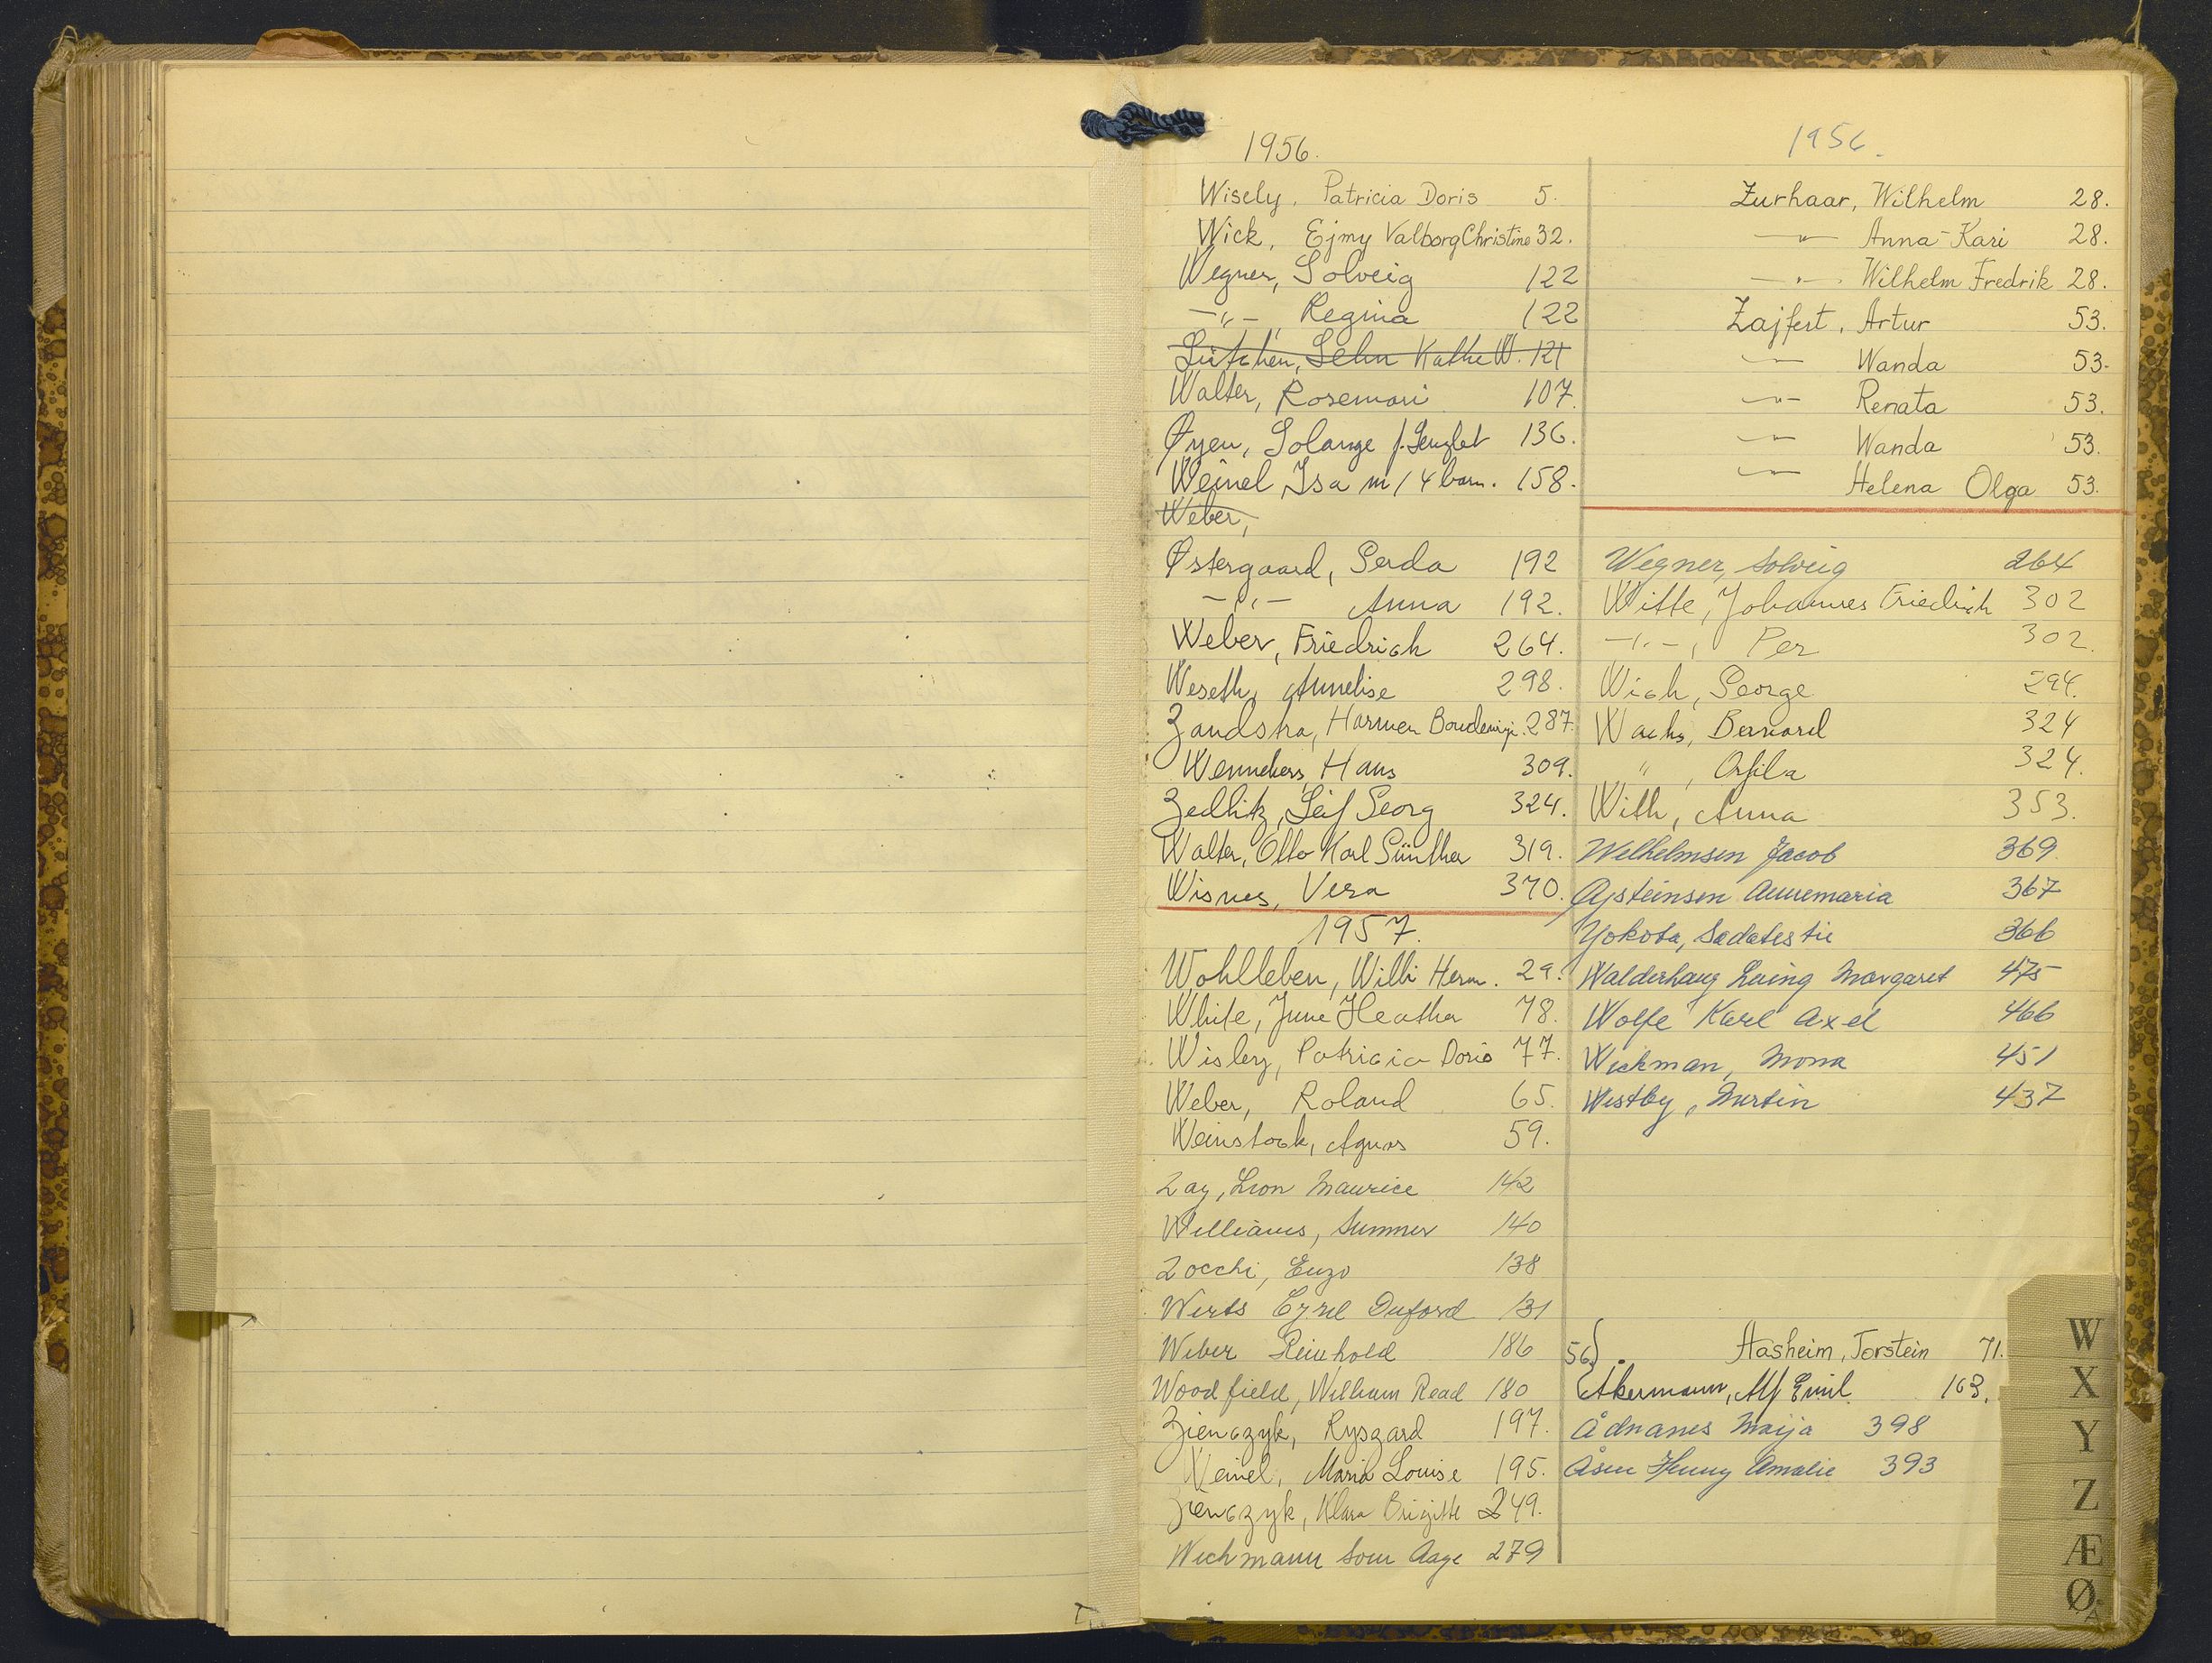 1956.
Wisely, Patricia Doris 5.
Wick, Ejmy Valborg Christine 32.
Wegner, Solveig 122
-"- Regina 122
Käthe W. 121
Walter, Rosemari 107.
Øyen, Solange f. Lenglet 136.
Weinel Isa m/ 4 barn. 158.
Weber,
Østergaard, Gerda 192
-"- Anna 192.
Weber, Friedrich 264.
Weseth, Annelise 298.
Zandstra, Harmen 287.
Wennekers, Hans 309.
Zedlitz, Leif Georg 324.
Walter, Otto Karl Günther 319.
Wisnes, Vera 370.
1957.
Wohlleben, Willi Herm. 29.
White, June Heather 78.
Wisley, Patricia Doris 77.
Weber, Roland 65.
Weinstock, Agnes 59.
Zay, Leon Maurice 142
Williams, Sumner 140
Zocchi, Enzo 138
Werts Cyrel Duford 131
Weber Reinhold 186
Woodfield, William Read 180
Zienczyk, Ryszard 197.
Weinel, Maria Louise 195.
Zienczyk, Klara Brigitte 249.
Wichmann Aage 279
1956.
Zurhaar, Wilhelm 28.
-"- Anna-Kari 28.
-"- Wilhelm Fredrik 28.
Zajfert, Artur 53.
-"- Wanda 53.
-"- Renata 53.
-"- Wanda 53.
-"- Helena Olga 53.
Wegner, Solveig 264
Witte, Johannes Friedrich 302
-"-, Per 302.
Wich, George 294.
Wachs, Bernard 324
" , Orfila 324.
With, Anna 353.
Wilhelmsen Jacob 369
Øysteinsen Annemaria 367
Yokota, 366
Walderhaug Laing Margaret 475
Wolfe Karl Axel 466
Wickman, Mona 451
Westby, Martin 437
56} Aasheim, Torstein 71.
Akermann, Alf Emil 163.
Ådnanes Maija 398
Åsen Henny Amalie 393
W
X
Y
Z
Æ
Ø
Å